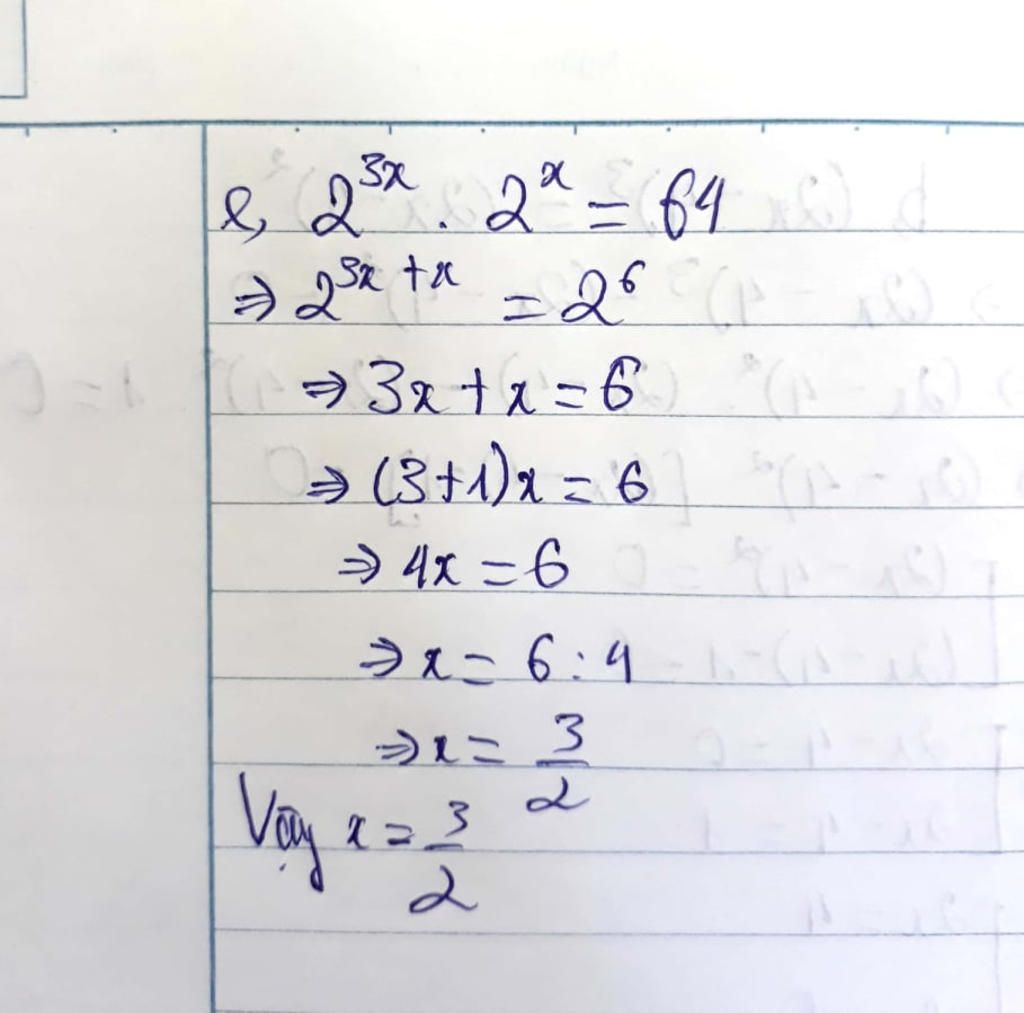 e, 2^{3x} . 2^{x} = 64
⇒ 2^{3x + x} = 2^{6}
⇒ 3x + x = 6
⇒ (3+1)x = 6
⇒ 4x = 6
⇒ x = 6 : 4
⇒ x = \frac{3}{2}
Vậy x = \frac{3}{2}